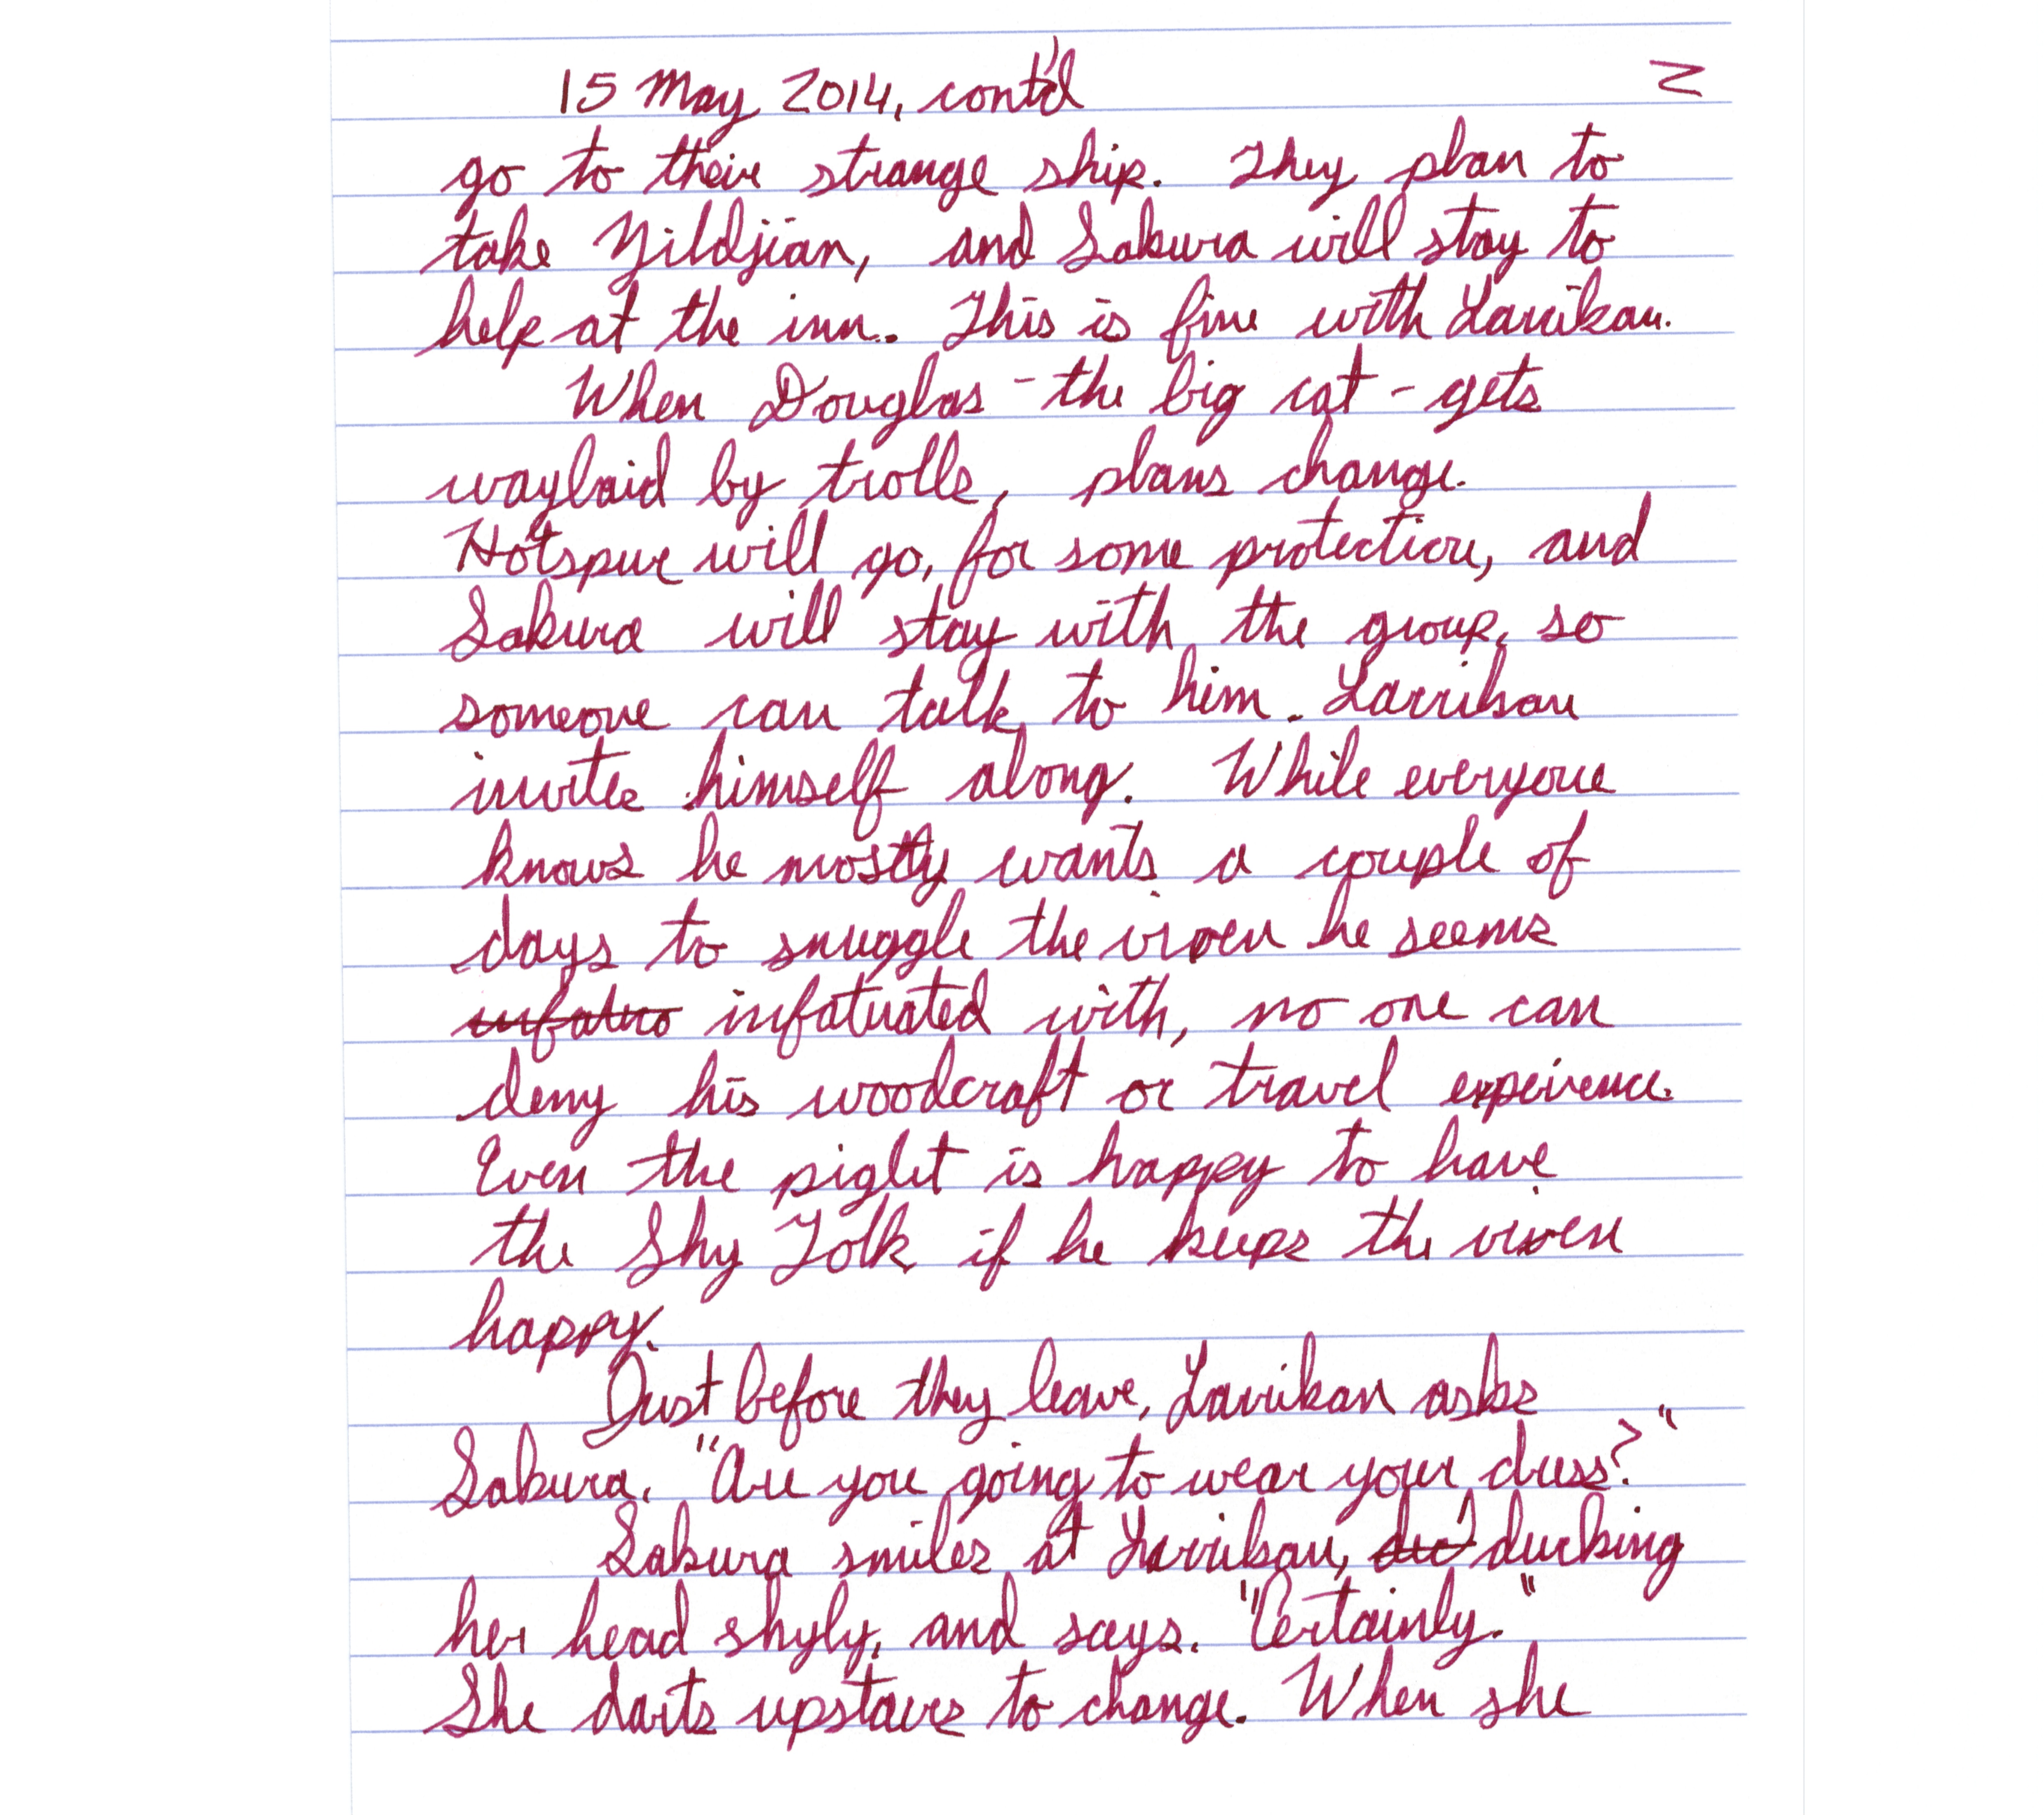 15 May 2014, cont'd 2
go to their strange ship. They plan to
take Yildjian, and Sakura will stay to
help at the inn. This is fine with Larrikan.
When Douglas - the big cat - gets
waylaid by trolls, plans change.
Hotspur will go, for some protection, and
Sakura will stay with the group, so
someone can talk to him. Larrikan
invites himself along. While everyone
knows he mostly wants a couple of
days to snuggle the vixen he seems
infatuo infatuated with, no one can
deny his woodcraft or travel experience.
Even the piglet is happy to have
the Shy Folk if he keeps the vixen
happy.
Just before they leave, Larrikan asks
Sakura, "Are you going to wear your dress?"
Sakura smiles at Larrikan, duc ducking
her head shyly, and says, "Certainly."
She darts upstairs to change. When she